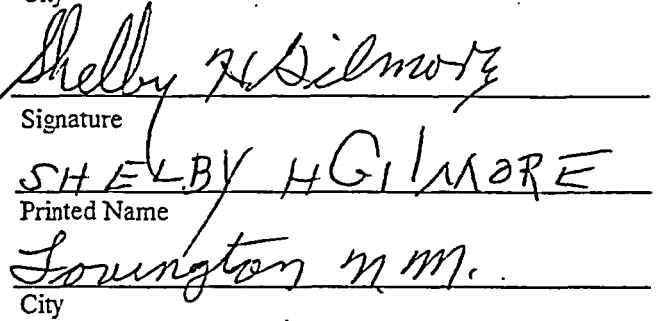 Shelby H Gilmore
Signature
SHELBY H GILMORE
Printed Name
Lovington N.M.
City